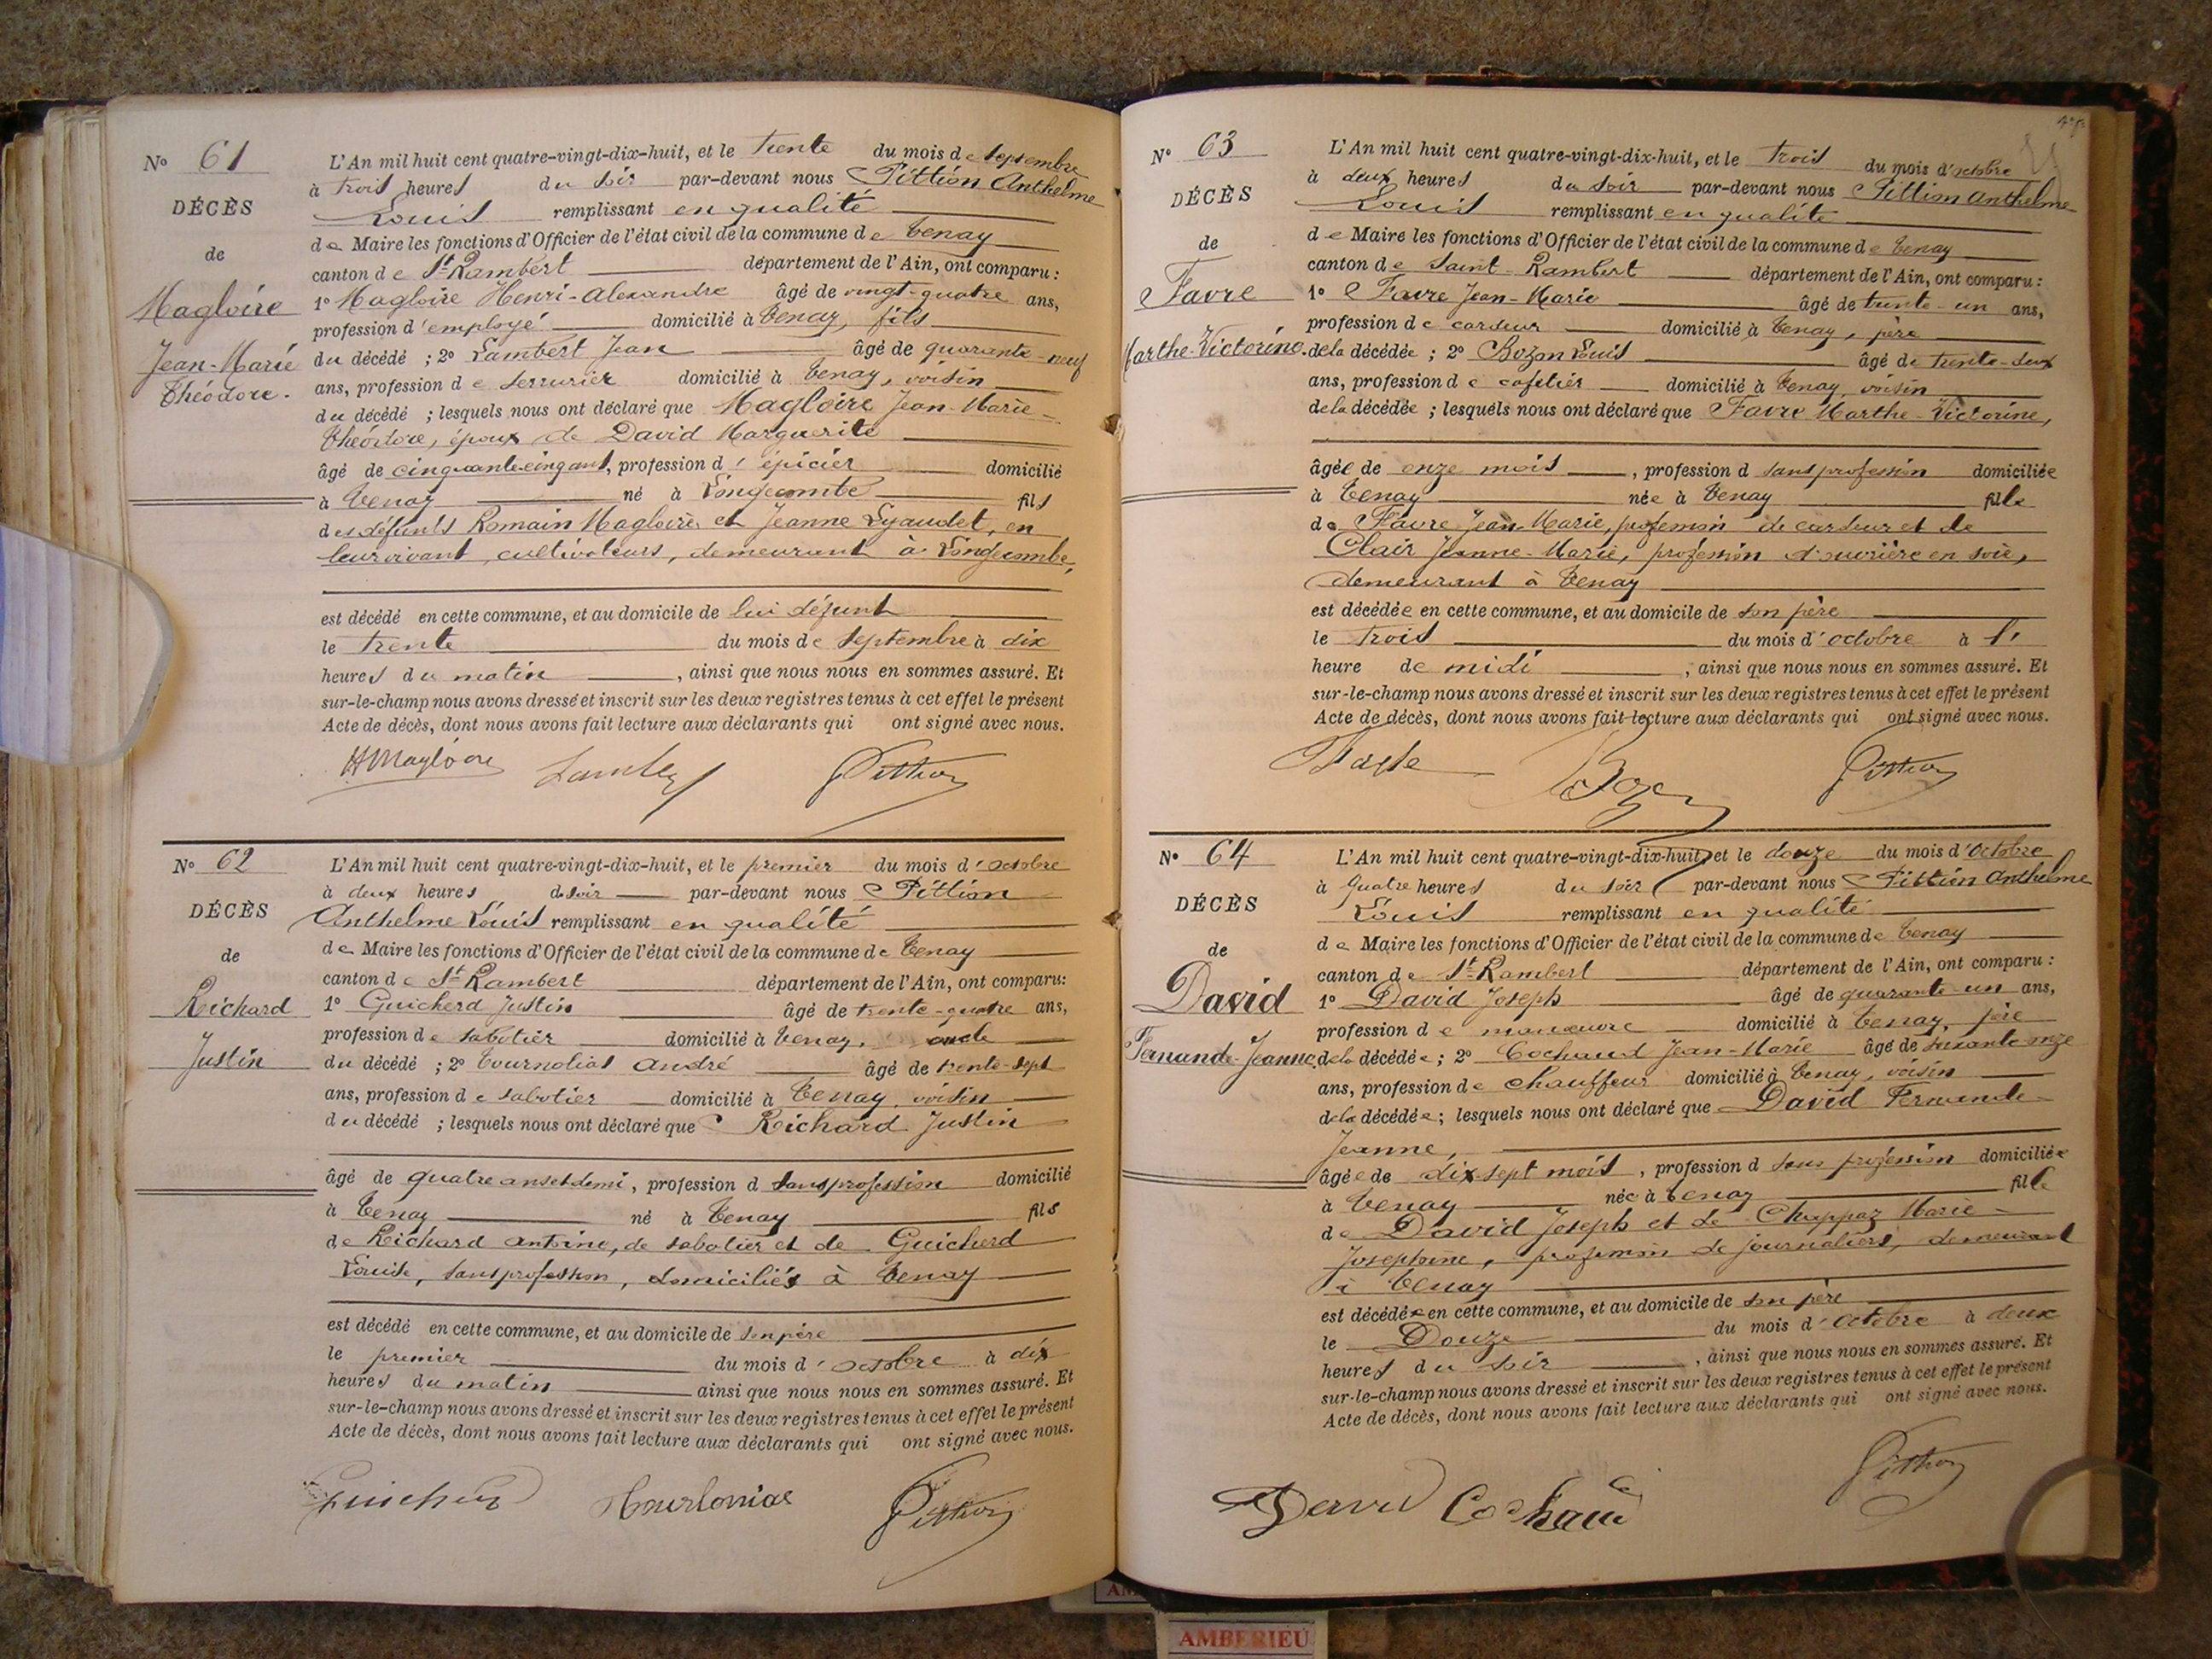 N° 61
DÉCÈS
de
Magloire
Jean-Marie
Théodore.
L'An mil huit cent quatre-vingt-dix-huit, et le trente du mois de septembre
à trois heures du soir par-devant nous Pittion Anthelme
Louis remplissant en qualité
de Maire les fonctions d'Officier de l'état civil de la commune de Tenay
canton de St-Rambert département de l'Ain, ont comparu :
1° Magloire Henri-Alexandre âgé de vingt-quatre ans,
profession d'employé domicilié à Tenay, fils
du décédé ; 2° Lambert Jean âgé de quarante-neuf
ans, profession de serrurier domicilié à Tenay, voisin
du décédé ; lesquels nous ont déclaré que Magloire Jean-Marie-
Théodore, époux de David Marguerite
âgé de cinquante cinq ans, profession d'épicier domicilié
à Tenay né à Longecombe fils
des défunts Romain Magloire et Jeanne Lyaudet, en
leur vivant, cultivateurs, demeurant à Longecombe,
est décédé en cette commune, et au domicile de lui défunt
le trente du mois de septembre à dix
heures du matin, ainsi que nous nous en sommes assuré. Et
sur-le-champ nous avons dressé et inscrit sur les deux registres tenus à cet effet le présent
Acte de décès, dont nous avons fait lecture aux déclarants qui ont signé avec nous.
HMagloire Lambert Pittion
N° 62
DÉCÈS
de
Richard
Justin
L'An mil huit cent quatre-vingt-dix-huit, et le premier du mois d'octobre
à deux heures d soir par-devant nous Pittion
Anthelme Louis remplissant en qualité
de Maire les fonctions d'Officier de l'état civil de la commune de Tenay
canton de St-Rambert département de l'Ain, ont comparu:
1° Guicherd Justin âgé de trente-quatre ans,
profession de sabotier domicilié à Tenay, oncle
du décédé ; 2° Tournolias André âgé de trente-sept
ans, profession de sabotier domicilié à Tenay, voisin
du décédé ; lesquels nous ont déclaré que Richard Justin
âgé de quatre ans et demi, profession d sans profession domicilié
à Tenay né à Tenay fils
de Richard Antoine, de sabotier et de Guicherd
Louise, sans profession, domiciliés à Tenay
est décédé en cette commune, et au domicile de son père
le premier du mois d'octobre à dix
heures du matin ainsi que nous nous en sommes assuré. Et
sur-le-champ nous avons dressé et inscrit sur les deux registres tenus à cet effet le présent
Acte de décès, dont nous avons fait lecture aux déclarants qui ont signé avec nous.
Guicherd Pittion
N° 63
DÉCÈS
de
Favre
Marthe-Victorine.
L'An mil huit cent quatre-vingt-dix-huit, et le trois du mois d'octobre
à deux heures du soir par-devant nous Pittion Anthelme
Louis remplissant en qualité
de Maire les fonctions d'Officier de l'état civil de la commune de Tenay
canton de Saint-Rambert département de l'Ain, ont comparu :
1° Favre Jean-Marie âgé de trente-un ans,
profession de cardeur domicilié à Tenay, père
de la décédée ; 2° Bozon Louis âgé de trente-deux
ans, profession de cafetier domicilié à Tenay, voisin
de la décédée ; lesquels nous ont déclaré que Favre Marthe-Victorine,
âgée de onze mois, profession d sans profession domiciliée
à Tenay née à Tenay fille
de Favre Jean-Marie, profession de cardeur et de
Clair Jeanne-Marie, profession d'ouvrière en soie,
demeurant à Tenay
est décédée en cette commune, et au domicile de son père
le trois du mois d'octobre à l'
heure de midi, ainsi que nous nous en sommes assuré. Et
sur-le-champ nous avons dressé et inscrit sur les deux registres tenus à cet effet le présent
Acte de décès, dont nous avons fait lecture aux déclarants qui ont signé avec nous.
Bozon Pittion
N° 64
DÉCÈS
de
David
Fernande-Jeanne.
L'An mil huit cent quatre-vingt-dix-huit, et le douze du mois d'Octobre
à quatre heures du soir par-devant nous Pittion Anthelme
Louis remplissant en qualité
de Maire les fonctions d'Officier de l'état civil de la commune de Tenay
canton de St-Rambert département de l'Ain, ont comparu :
1° David Joseph âgé de quarante-un ans,
profession de manœuvre domicilié à Tenay, père
de la décédée ; 2° Cochaud Jean-Marie âgé de soixante-onze
ans, profession de chauffeur domicilié à Tenay, voisin
de la décédée ; lesquels nous ont déclaré que David Fernande-
Jeanne,
âgée de dix-sept mois, profession d sans profession domiciliée
à Tenay née à Tenay fille
de David Joseph et de Chappaz Marie-
Josephine, profession de journaliers, demeurant
à Tenay
est décédée en cette commune, et au domicile de son père
le Douze du mois d'octobre à deux
heures du soir, ainsi que nous nous en sommes assuré. Et
sur-le-champ nous avons dressé et inscrit sur les deux registres tenus à cet effet le présent
Acte de décès, dont nous avons fait lecture aux déclarants qui ont signé avec nous.
David Cochaud Pittion
AMBERIEU